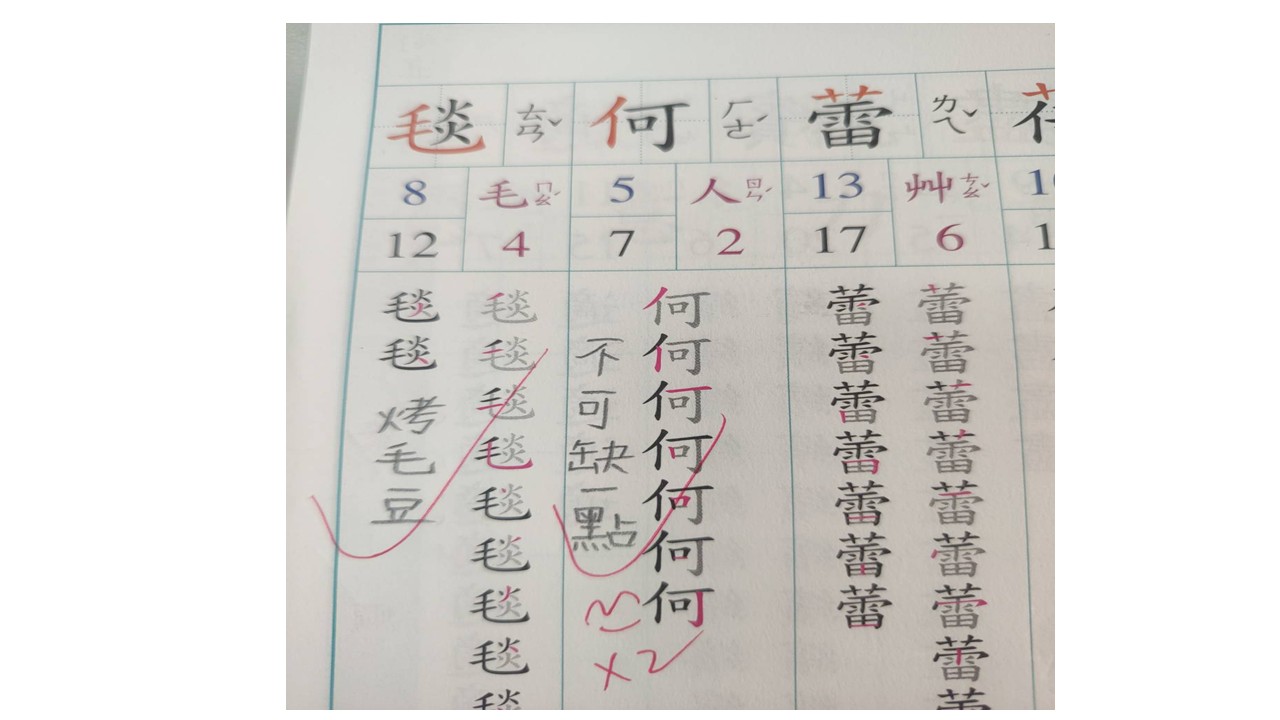 毯 ㄊㄢˇ 何 ㄏㄜˊ 蕾 ㄌㄟˇ
8 毛 ㄇㄠˊ 5 人 ㄖㄣˊ 13 艸 ㄘㄠˇ
12 4 7 2 17 6
毯 毯 何 蕾 蕾
毯 毯 不 何 蕾 蕾
烤 毯 可 何 蕾 蕾
毛 毯 缺 何 蕾 蕾
豆 毯 一 何 蕾 蕾
毯 點 何 蕾 蕾
毯 何 蕾 蕾
毯 x2 蕾
毯 蕾